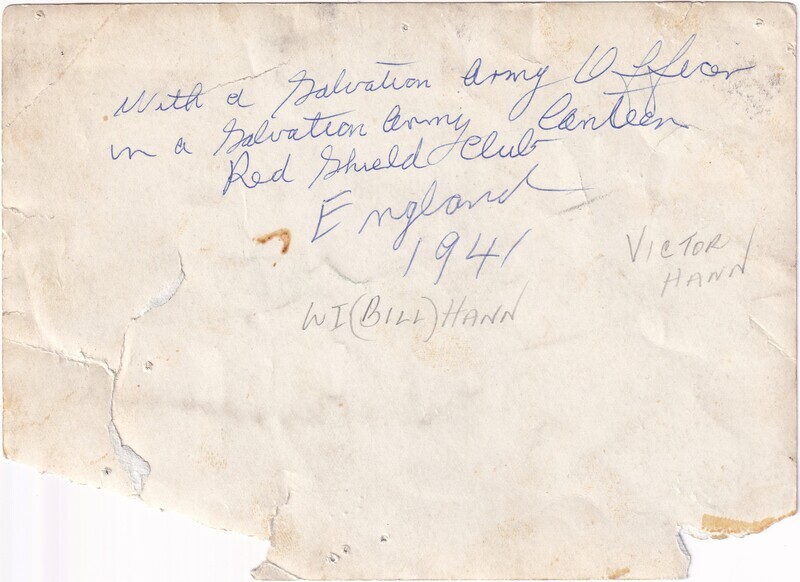 With a Salvation Army Officer
in a Salvation Army Canteen
Red Shield Club
England
1941
VICTOR
HANN
WI (BILL) HANN